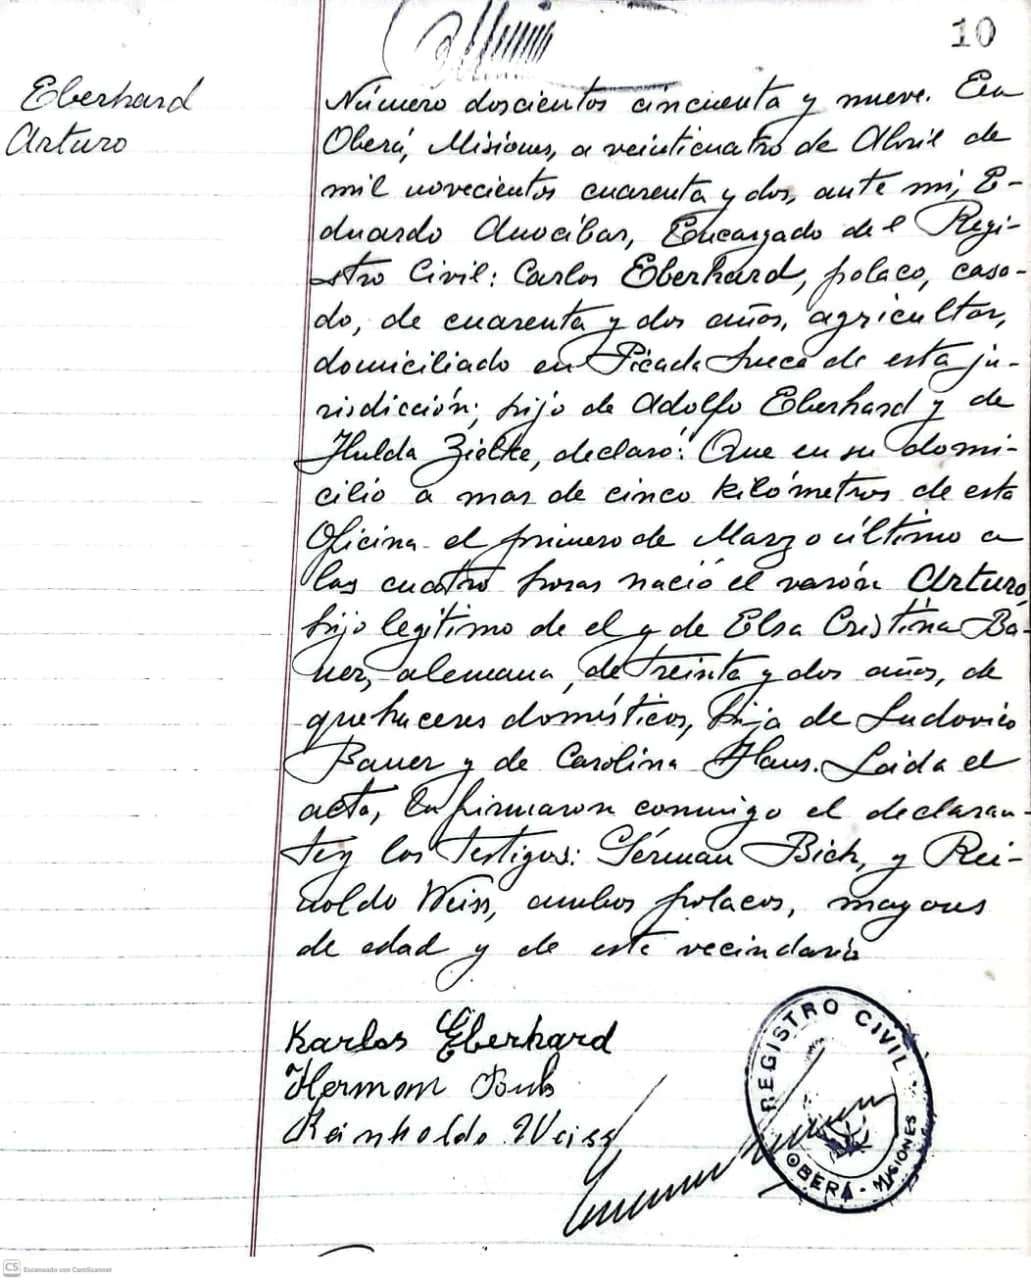 10
Eberhard
Arturo
Número doscientos cincuenta y nueve. En
Oberá, Misiones, a veinticuatro de Abril de
mil novecientos cuarenta y dos, ante mi, E-
duardo Anocibar, Encargado del Regi-
stro Civil: Carlos Eberhard, polaco, casa-
do, de cuarenta y dos años, agricultor,
domiciliado en Picada Sueca de esta ju-
risdicción; hijo de Adolfo Eberhard y de
Hulda Zielke, declaró: Que en su domi-
cilio a mas de cinco kilómetros de esta
Oficina el primero de Marzo último a
las cuatro horas nació el varón Arturo,
hijo legítimo de el y de Elsa Cristina Ba-
uer, alemana, de treinta y dos años, de
quehaceres domésticos, hija de Ludovico
Bauer y de Carolina Haus. Leida el
acta, la firmaron conmigo el declaran-
te y los testigos: Gérman Bich, y Rei-
noldo Weiss, ambos polacos, mayores
de edad y de este vecindario
Karlos Eberhard
Herman
Reinholdo Weiss
REGISTRO CIVIL
OBERÁ - MISIONES
CS Escaneado con CamScanner